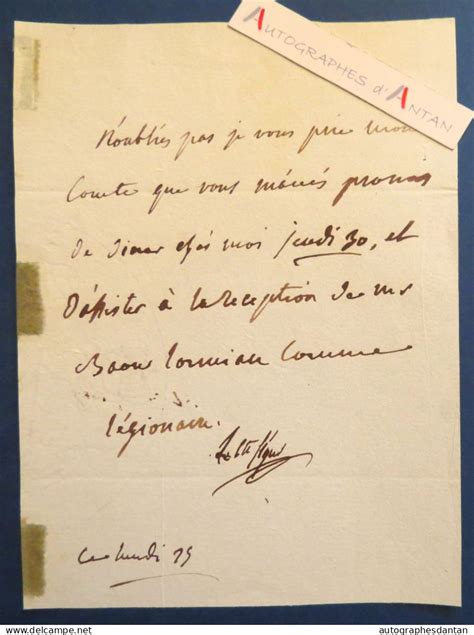 AUTOGRAPHES d'ANTAN
N'oubliés pas je vous prie mon
Comte que vous m'avés promis
de diner chés moi jeudi 30, et
d'assister à la reception de mr
Baour lormian Comme
légionaire.
Le Cte Ségur
Ce lundi
www.delcampe.net
autographesdantan